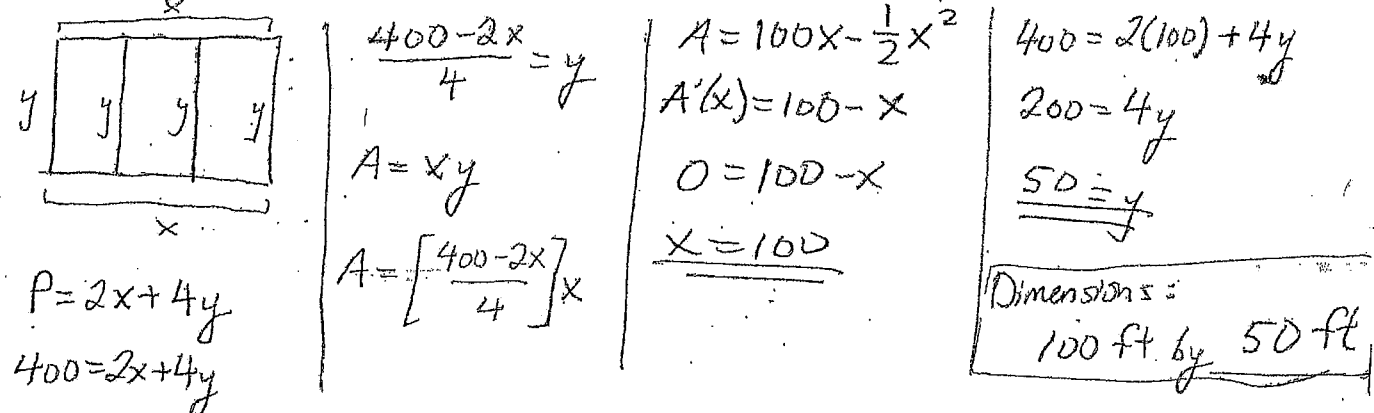 x
y y y y
x
P=2x+4y
400=2x+4y
400-2x/4 = y
A=xy
A=[400-2x/4]x
A=100x-1/2x²
A'(x)=100-x
0=100-x
x=100
400=2(100)+4y
200=4y
50=y
Dimensions:
100 ft. by 50 ft